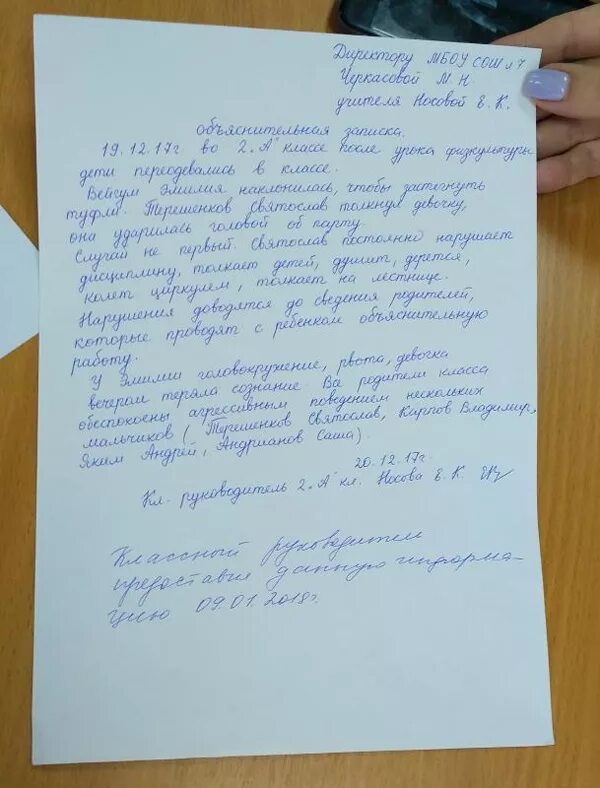 Директору МБОУ СОШ №7
Черкасовой М. Н.
учителя Носовой Е. К.
объяснительная записка.
19.12.17г. во 2 „А" классе после урока физкультуры
дети переодевались в классе.
Вейгум Эмилия наклонилась, чтобы застегнуть
туфли. Терешенков Святослав толкнул девочку,
она ударилась головой об парту.
Случай не первый. Святослав постоянно нарушает
дисциплину, толкает детей, душит, дерется,
колет циркулем, толкает на лестнице.
Нарушения доводятся до сведения родителей,
которые проводят с ребенком объяснительную
работу.
У Эмилии головокружение, рвота, девочка
вечером теряла сознание. Все родители класса
обеспокоены агрессивным поведением нескольких
мальчиков (Терешенков Святослав, Карпов Владимир,
Яким Андрей, Андрианов Саша).
20.12.17г.
Кл. руководитель 2 „А" кл. Носова Е. К.
Классный руководитель
предоставил данную информа-
цию 09.01.2018г.